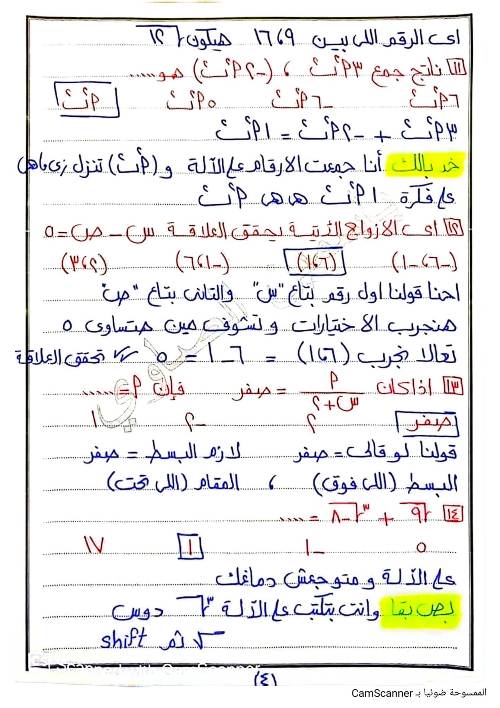 اى الرقم اللى بين ٩ ، ١٦ هيكون √١٢
١١ ناتج جمع ٣ أ ب ، (-٢ أ ب) هو .....
٦ أ ب -٦ أ ب ٥ أ ب أ ب
٣ أ ب + -٢ أ ب = ١ أ ب
خد بالك أنا جمعت الارقام على الآلة و (أ ب) تنزل زى ماهى
على فكرة ١ أ ب هى هى أ ب
١٢ اى الازواج الاتية يحقق العلاقة س - ص = ٥
(-٦ ، -١) (٦ ، ١) (-١ ، ٦) (٢ ، ٣)
احنا قولنا اول رقم بتاع "س" والتانى بتاع "ص"
هنجرب الاختيارات ونشوف مين هتساوى ٥
تعالا نجرب (٦ ، ١) = ٦ - ١ = ٥ تحقق العلاقة
١٣ اذا كان م / س + ٢ = صفر فإن م = .....
صفر ٢ -٢ ١
قولنا لو قالى = صفر لازم البسط = صفر
البسط (اللى فوق) ، المقام (اللى تحت)
١٤ √٩ + ∛-٨ = ....
٥ -١ ١ ١٧
على الآلة ومتوجعش دماغك
بص بقا وانت بتكتب على الآلة ∛ دوس
shift ثم √
(٤)
الممسوحة ضوئيا بـ CamScanner